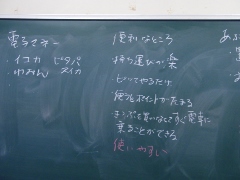 電子マネー
・イコカ ピタパ
・nanaco スイカ
便利なところ
持ち運びが楽
ピッてやるだけ
使うとポイントがたまる
きっぷを買わなくてもすぐ電車に
乗ることができる
使いやすい